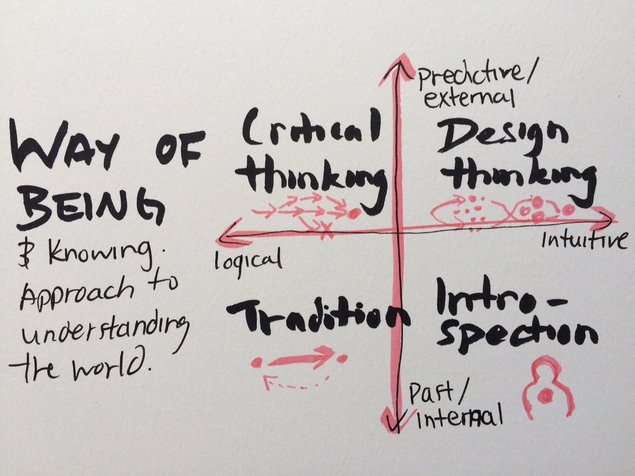 WAY OF
BEING
& Knowing.
Approach to
understanding
the world.
Predictive/
external
Critical
thinking
Design
thinking
logical
Intuitive
Tradition
Intro-
spection
Past/
internal